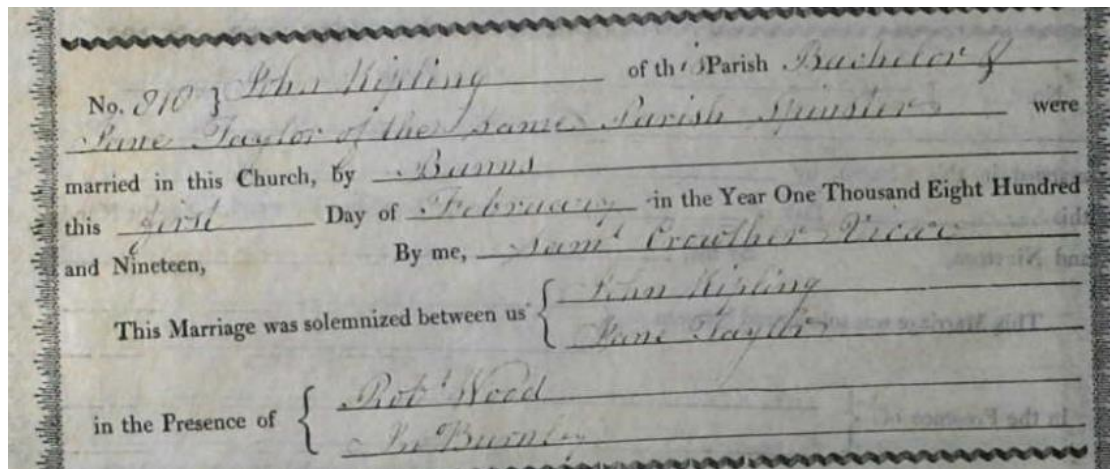 John Kipling of this Parish Bachelor &
No. 810 }
Jane Taylor of the same Parish Spinster were
married in this Church, by Banns
this first Day of February in the Year One Thousand Eight Hundred
and Nineteen, By me, Saml Crowther Vicar
This Marriage was solemnized between us { John Kipling
Jane Taylor
in the Presence of { Robt Wood
Burnley